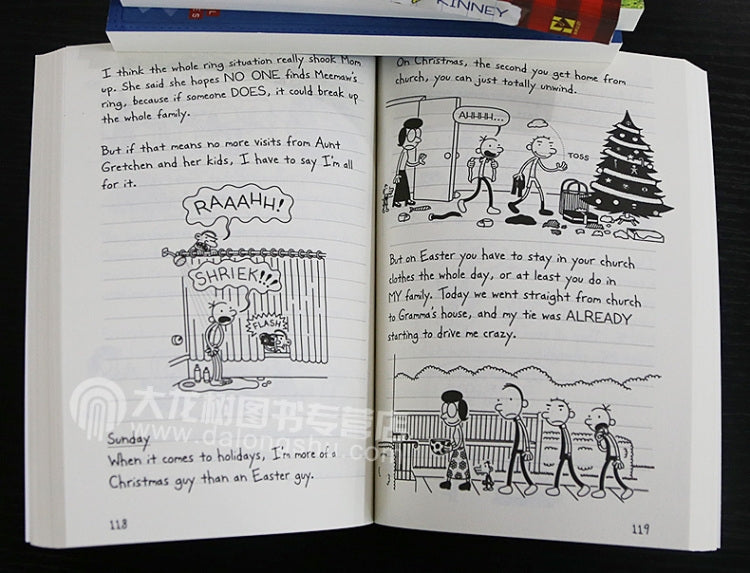 KINNEY
I think the whole ring situation really shook Mom
up. She said she hopes NO ONE finds Meemaw's
ring, because if someone DOES, it could break up
the whole family.
But if that means no more visits from Aunt
Gretchen and her kids, I have to say I'm all
for it.
RAAAHH!
SHRIEK!!!
FLASH
Sunday
When it comes to holidays, I'm more of a
Christmas guy than an Easter guy.
118
On Christmas, the second you get home from
church, you can just totally unwind.
AHHHH...
TOSS
But on Easter you have to stay in your church
clothes the whole day, or at least you do in
MY family. Today we went straight from church
to Gramma's house, and my tie was ALREADY
starting to drive me crazy.
119
大龙树图书专营店
www.dalongshu.com